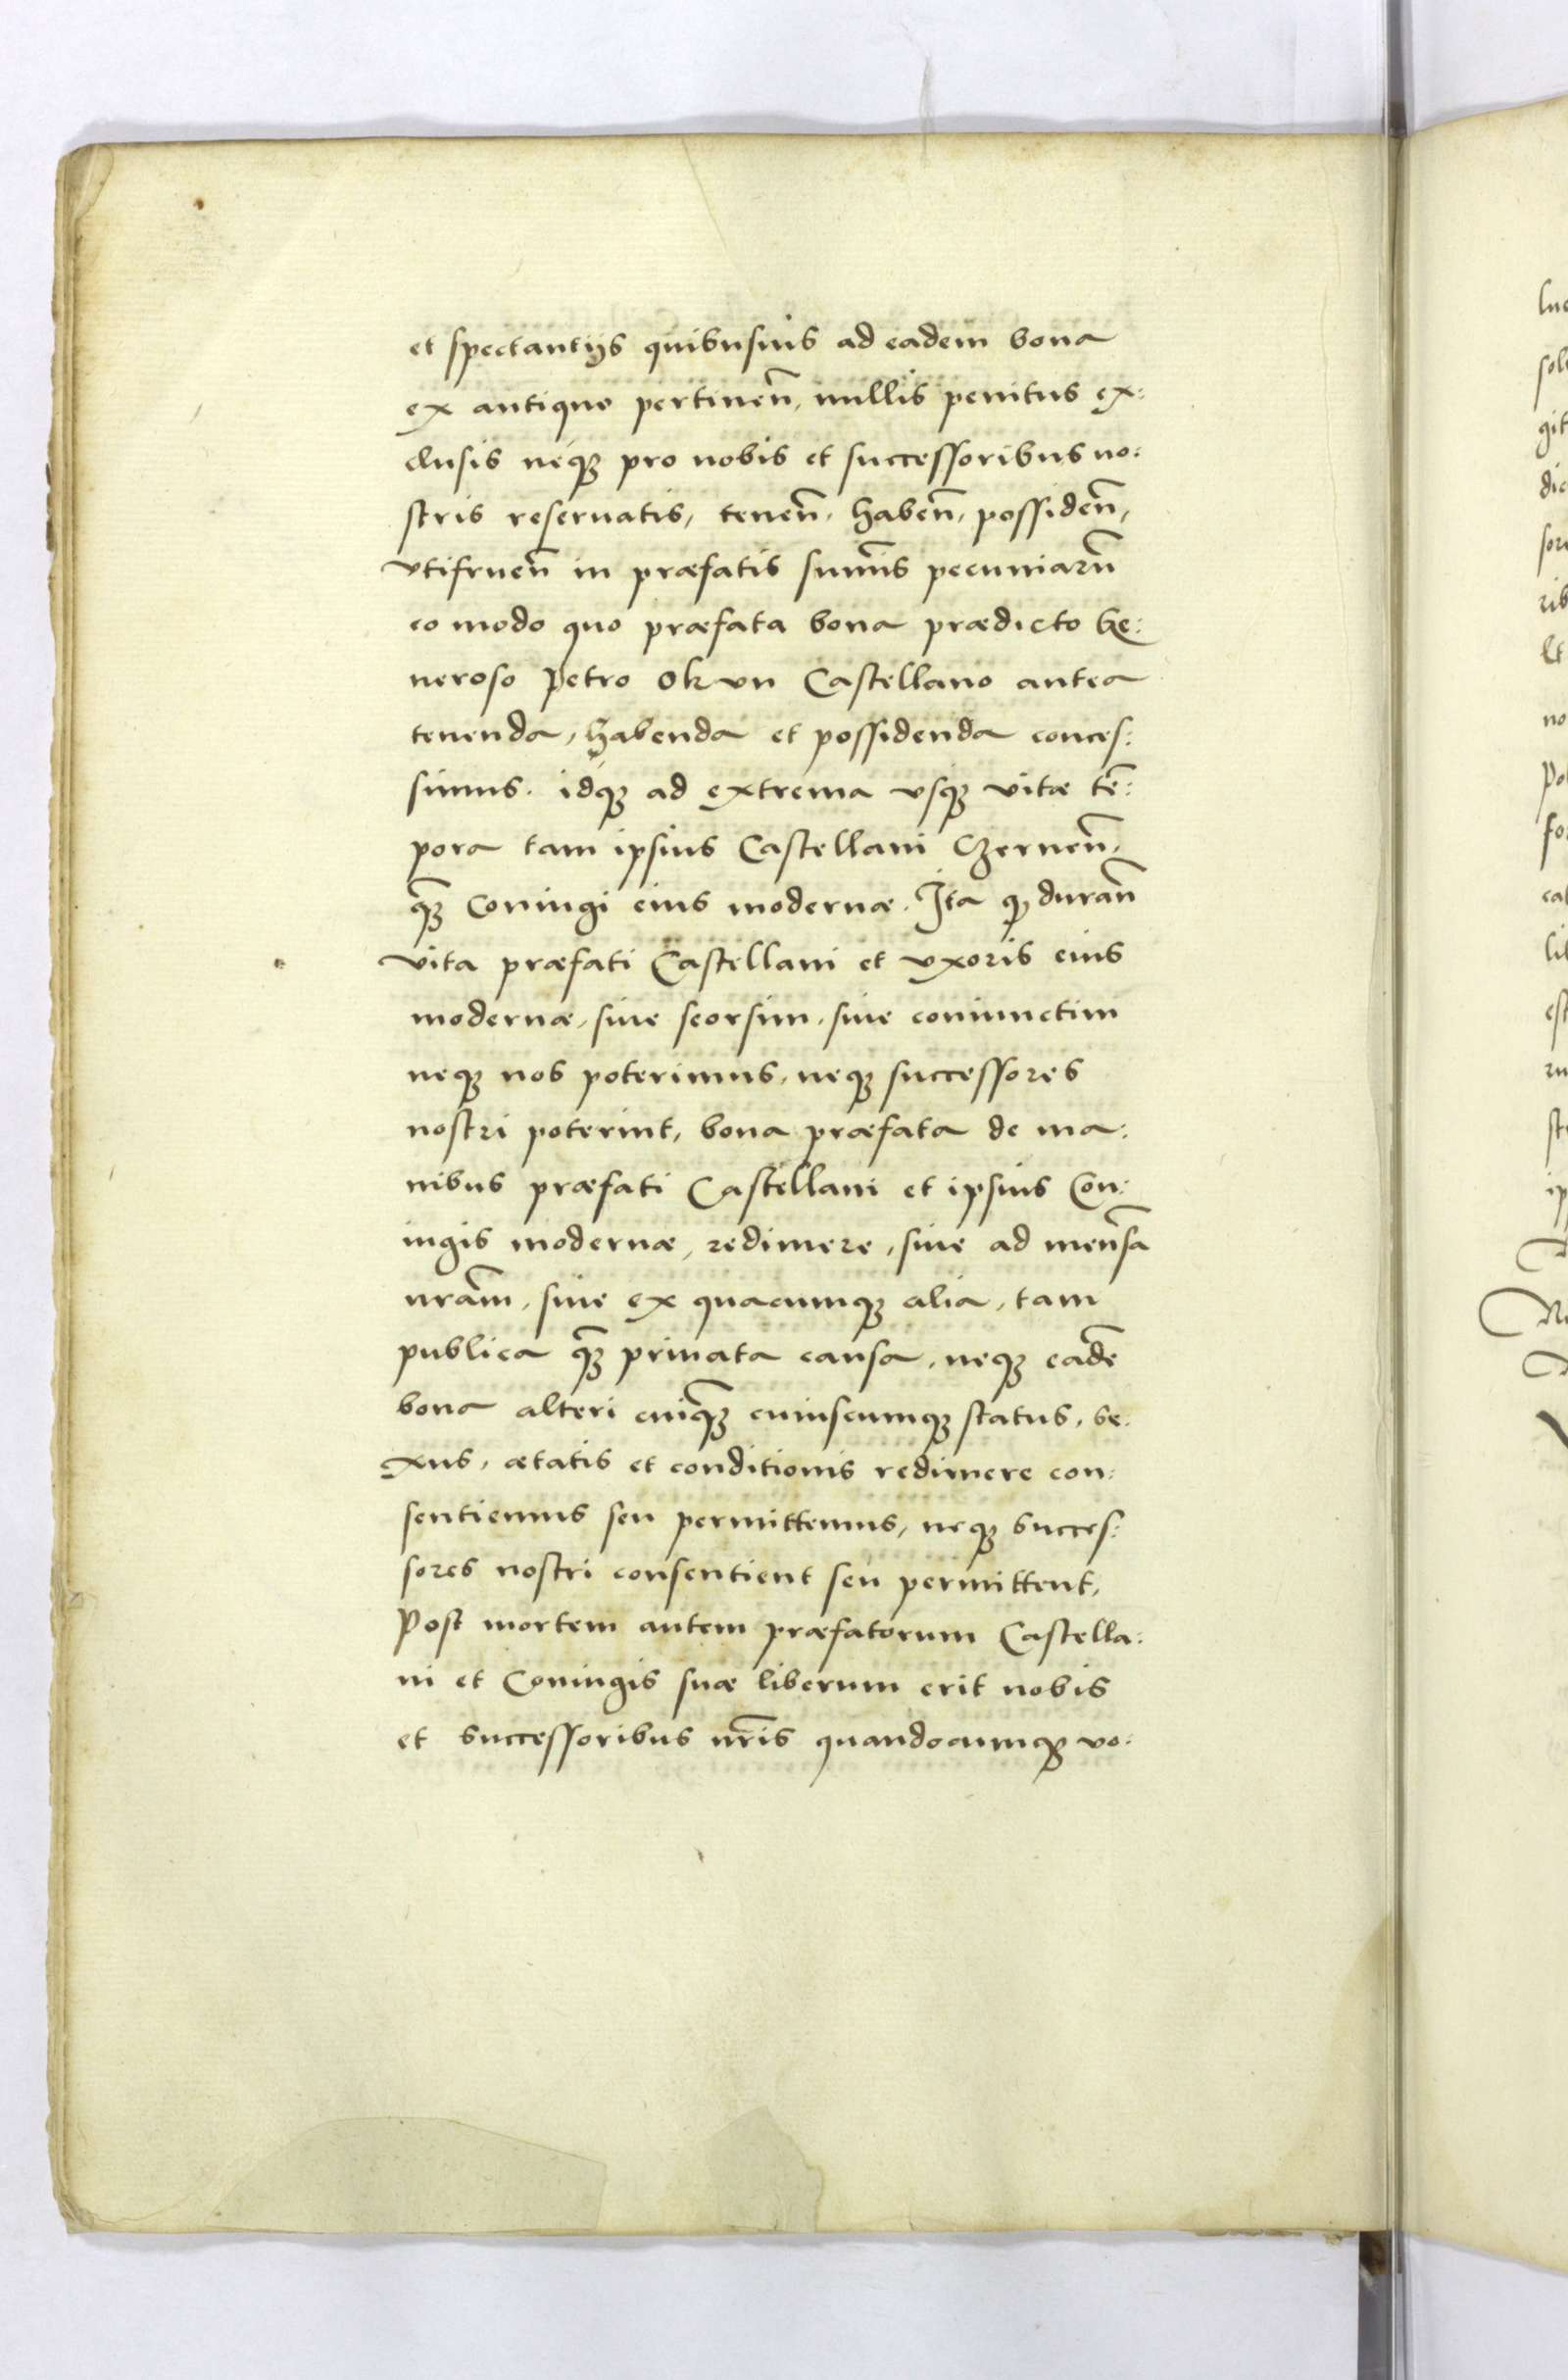 et spectantijs quibusuis ad eadem bona
ex antiquo pertinen̄, nullis penitus ex:
clusis neq₃ pro nobis et successoribus no:
stris reseruatis, tenen̄, haben̄, possiden̄,
vtifruen̄ in præfatis sum̄is pecuniarū
eo modo quo præfata bona prædicto Ge:
neroso Petro Okvn Castellano antea
tenenda, habenda et possidenda conces:
simus. idq₃ ad extrema vsq₃ vitæ tē:
pora tam ipsius Castellani Czernen̄,
q̃₃ Coniugi eius modernæ. Ita q₃ duran̄
vita præfati Castellani et vxoris eius
modernæ, siue seorsim, siue coniunctim
neq₃ nos poterimus, neq₃ successores
nostri poterint, bona præfata de ma:
nibus præfati Castellani et ipsius Con:
iugis modernæ, redimere, siue ad mensā
nrām, siue ex quacumq₃ alia, tam
publica q̃₃ priuata causa, neq₃ eadē
bona alteri cuiq̃₃ cuiuscumq₃ status, se:
xus, ætatis et conditionis redimere con:
sentiemus seu permittemus, neq₃ succes:
sores nostri consentient seu permittent,
Post mortem autem præfatorum Castella:
ni et Coniugis suæ liberum erit nobis
et successoribus nr̄is quandocumq₃ vo: